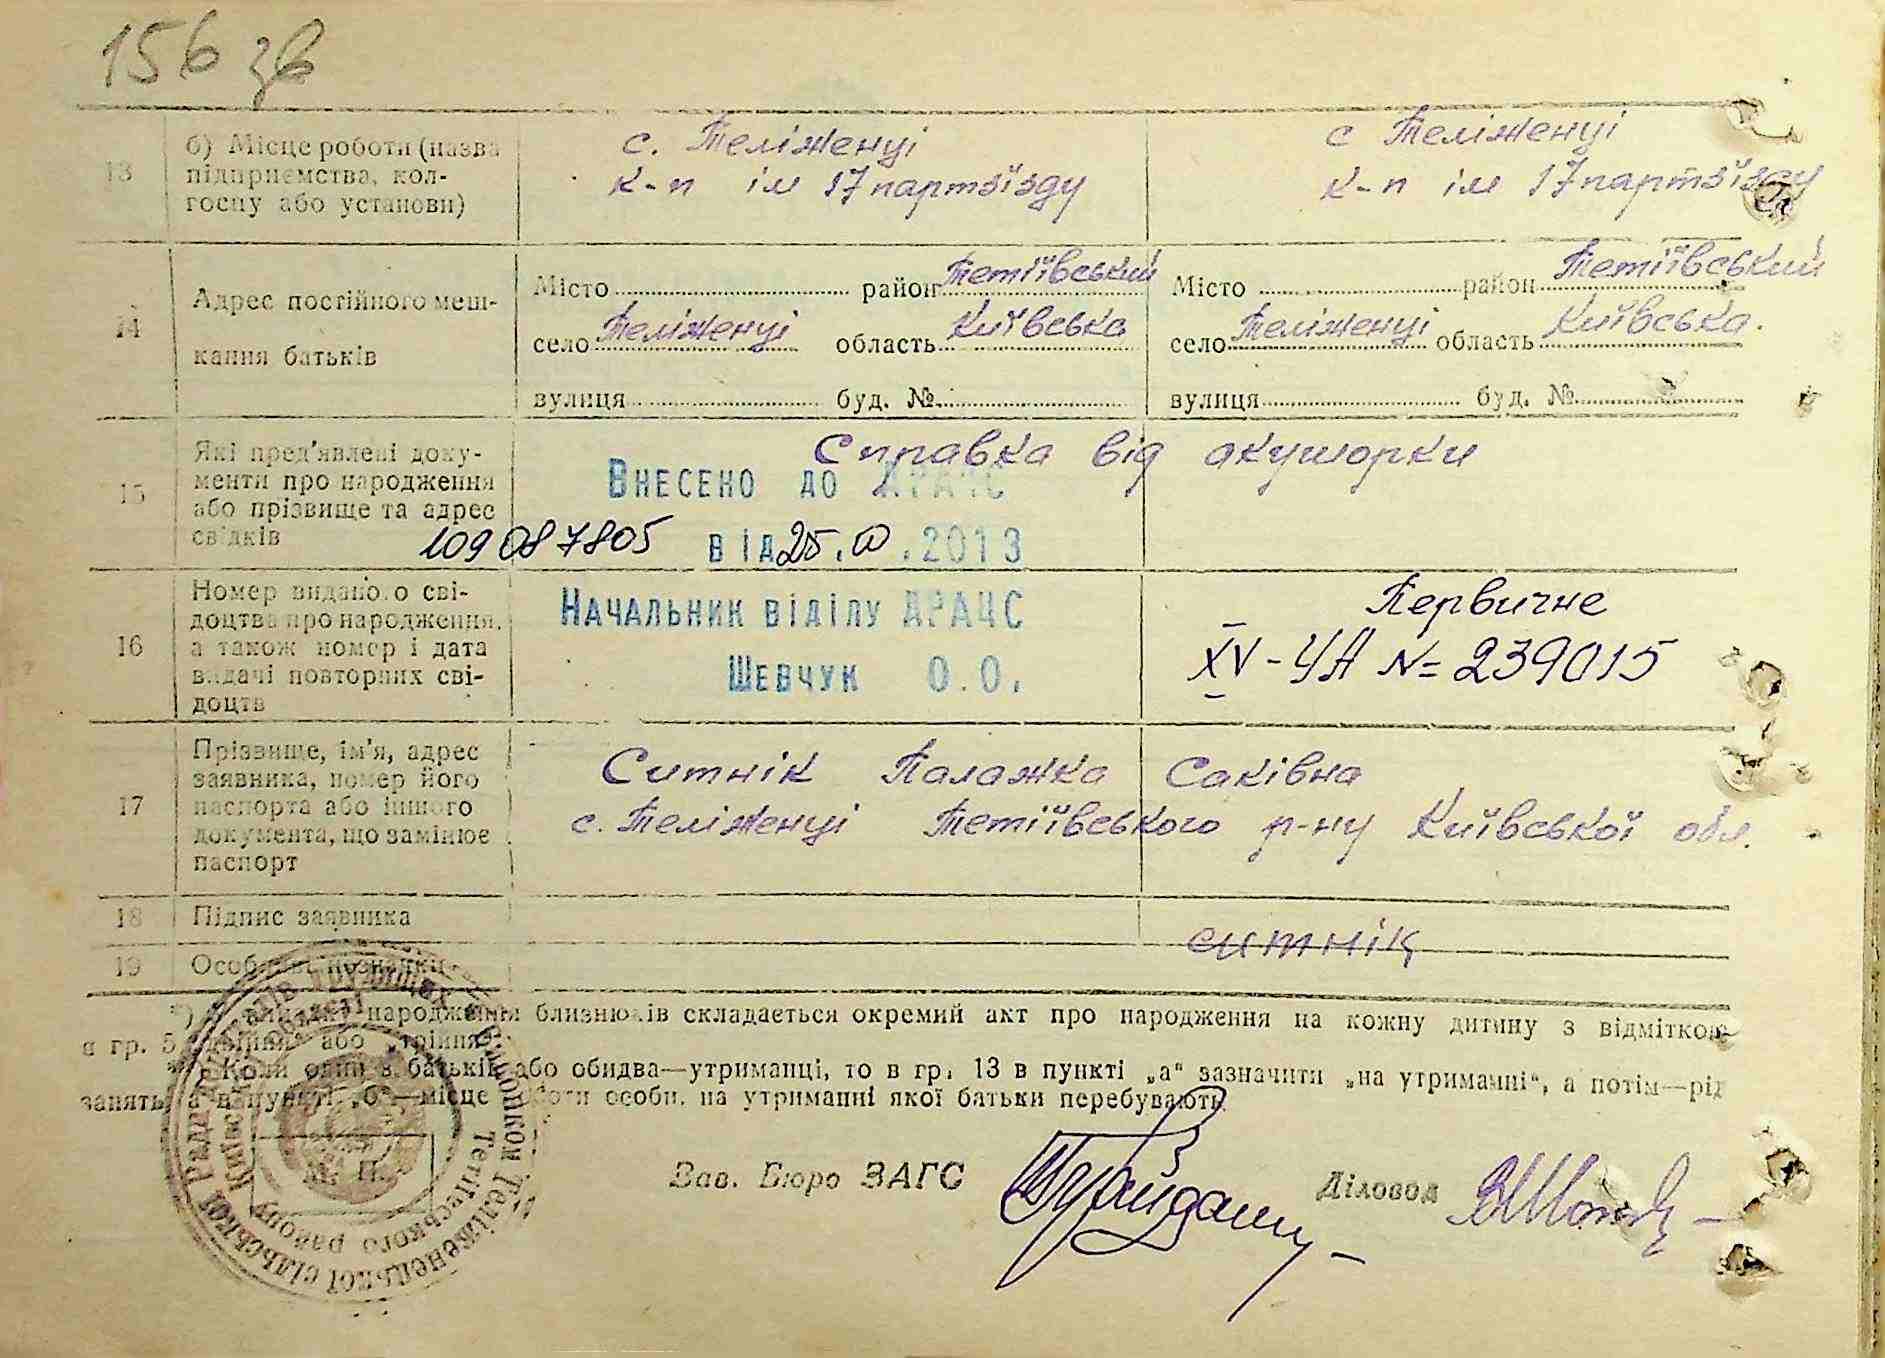 156 зв
13 б) Місце роботи (назва с. Теліженці с Теліженці
підприємства, кол- к-п ім 17 партзїзду к-п ім 17 партзїзду
госпу або установи)
Місто район Тетіївський Місто район Тетіївський
14 Адрес постійного меш-
кання батьків
село Теліженці область Київська село Теліженці область Київська.
вулиця буд. № вулиця буд. №
15 Які пред'явлені доку- Справка від акушорки
менти про народження Внесено до ДРАЦС
або прізвище та адрес
свідків 109087805 від 25. .2013
16 Номер виданого сві- Начальник відділу ДРАЦС Первичне
доцтва про народження,
а також номер і дата Шевчук О.О. XV-УА №239015
видачі повторних сві-
доцтв
17 Прізвище, ім'я, адрес Ситнік Палажка Саківна
заявника, номер його
паспорта або іншого с. Теліженці Тетіївського р-ну Київської обл.
документа, що замінює
паспорт
18 Підпис заявника ситнік
19 Особливі позначки
*) В випадку народження близнюків складається окремий акт про народження на кожну дитину з відміткою
в гр. 5 „двійня" або „трійня"
Коли один з батьків або обидва—утриманці, то в гр. 13 в пункті „а" зазначити „на утриманні", а потім—рід
занять, а в пункті „б"—місце роботи особи, на утриманні якої батьки перебувають.
Виконком Теліженецької сільської Ради депутатів трудящих
Тетіївського району Київської області
М. П.
Зав. Бюро ЗАГС Діловод